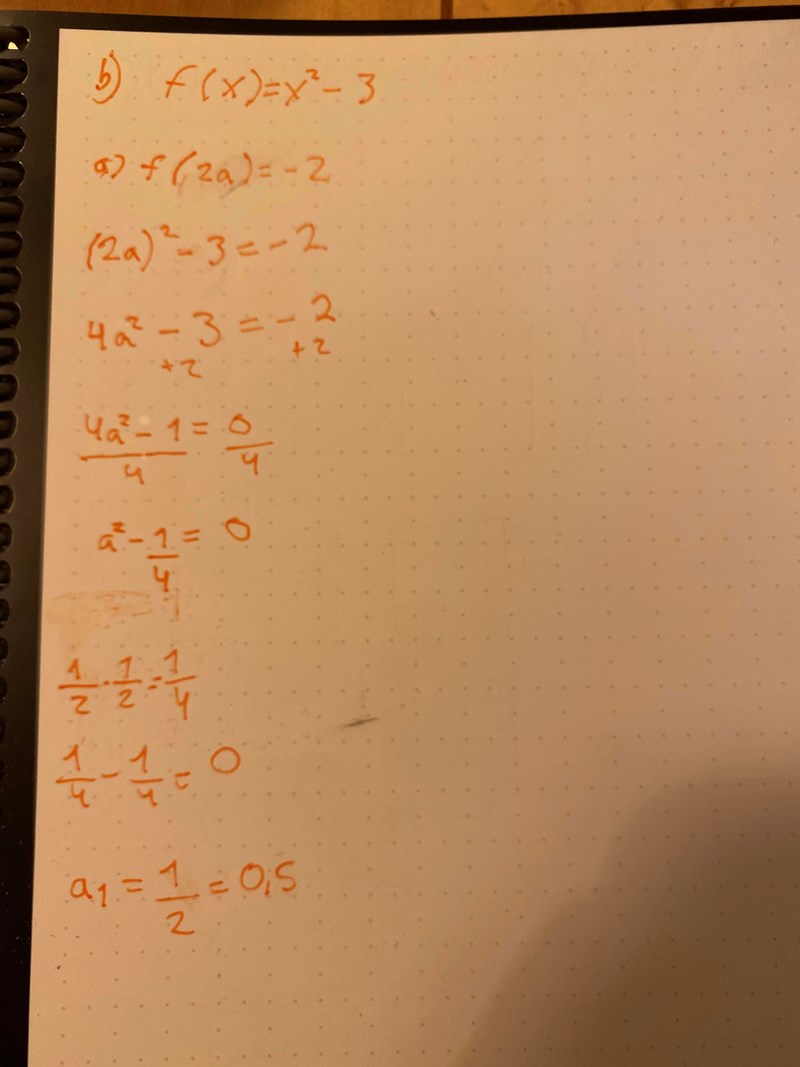 b) f(x)=x²-3
a) f(2a)=-2
(2a)²-3=-2
4a²-3=-2
+2 +2
4a²-1=0
4 4
a²-1=0
4
1/2·1/2=1/4
1/4-1/4=0
a₁=1/2=0,5